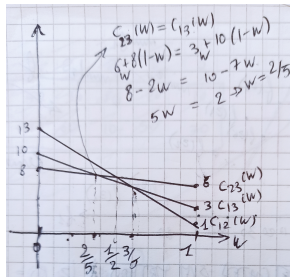 C₂₃(w) = C₁₃(w)
6w+8(1-w) = 3w+10(1-w)
8-2w = 10-7w
5w = 2 → w=2/5
13
10
8
6 C₂₃(w)
3 C₁₃(w)
1 C₁₂(w)
0
2/5
1/2
1
w